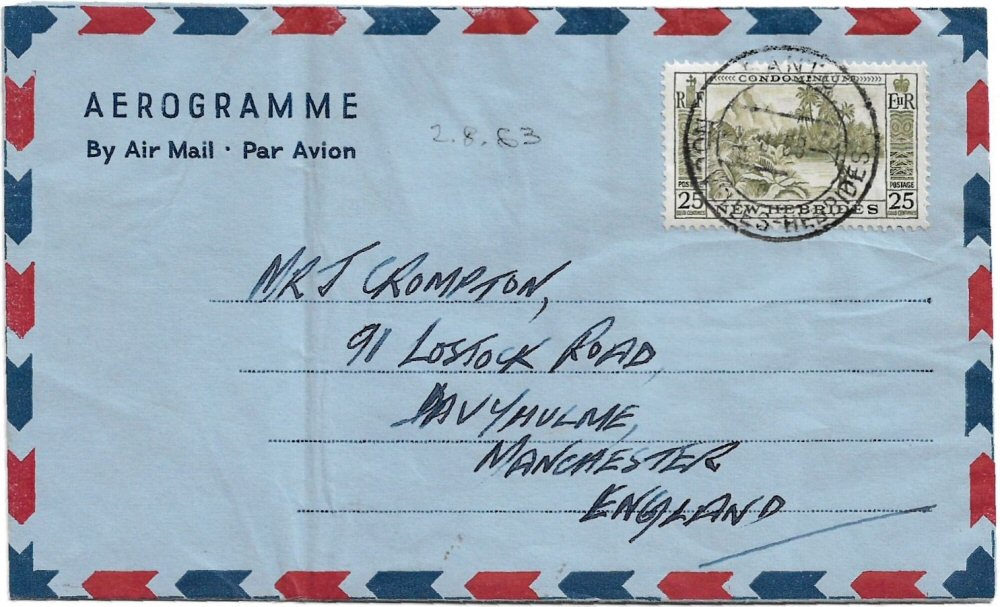 AEROGRAMME
By Air Mail · Par Avion
2.8.63
CONDOMINIUM
RF
EIIR
POSTAGE
25
GOLD CENTIMES
NEW HEBRIDES
POSTAGE
25
GOLD CENTIMES
HEBRIDES
MR J CROMPTON,
91 LOSTOCK ROAD,
DAVYHULME,
MANCHESTER
ENGLAND